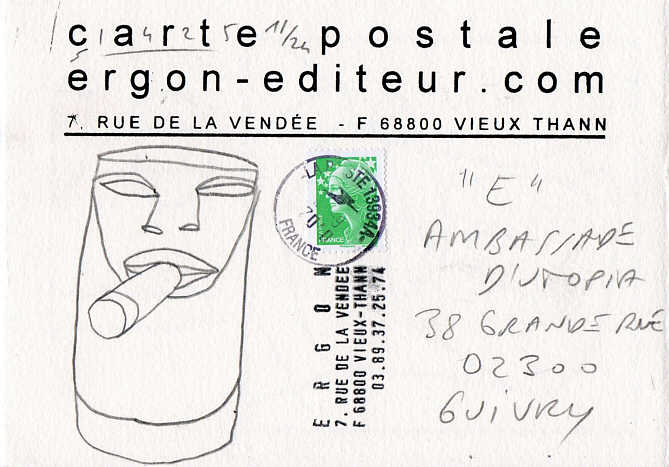 carte postale
ergon-editeur.com
7, RUE DE LA VENDÉE - F 68800 VIEUX THANN
11/24
LA POSTE 13934A
FRANCE
FRANCE
ERGON
7. RUE DE LA VENDEE
F 68800 VIEUX-THANN
03.89.37.25.74
"E"
AMBASSADE
D'UTOPIA
38 GRANDE RUE
02300
GUIVRY